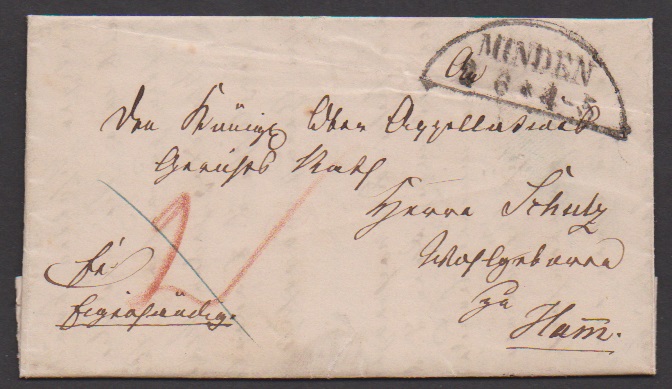 MINDEN
6 * 4-5
An
den Königl Ober Appellations
Gerichts Rath
Herrn Schulz
Wohlgeboren
zu
Hamm.
Eigenhändig.